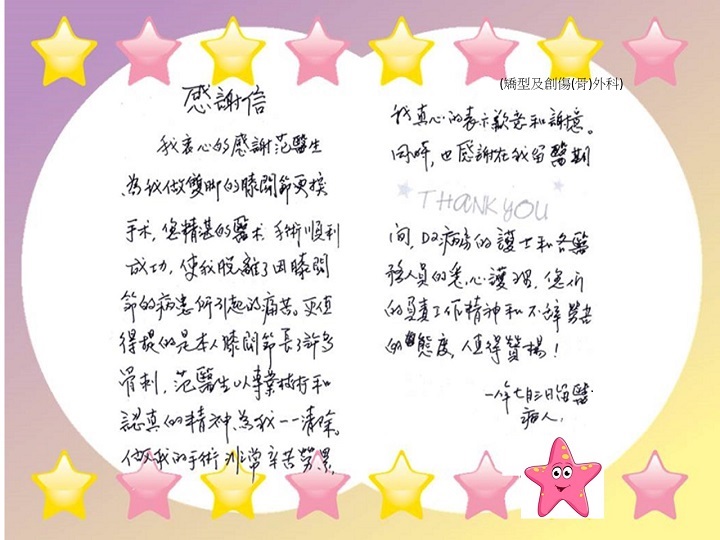 (矯型及創傷(骨)外科)
感謝信
我衷心的感謝范醫生
為我做雙脚的膝関節更換
手术,您精湛的醫术,手術順利
成功,使我脱離了因膝関
節的病患所引起的痛苦。更值
得提的是本人膝関節長了許多
骨刺,范醫生以專業技術和
認真的精神為我一一清除。
做我的手術非常辛苦勞累,
我真心的表示歉意和謝意。
同時,也感謝在我留醫期
THANK YOU
間,D2病房的護士和各醫
務人員的悉心護理,您们
的負責工作精神和不辞勞苦
的態度,值得贊揚!
一八年七月三日留醫
病人,